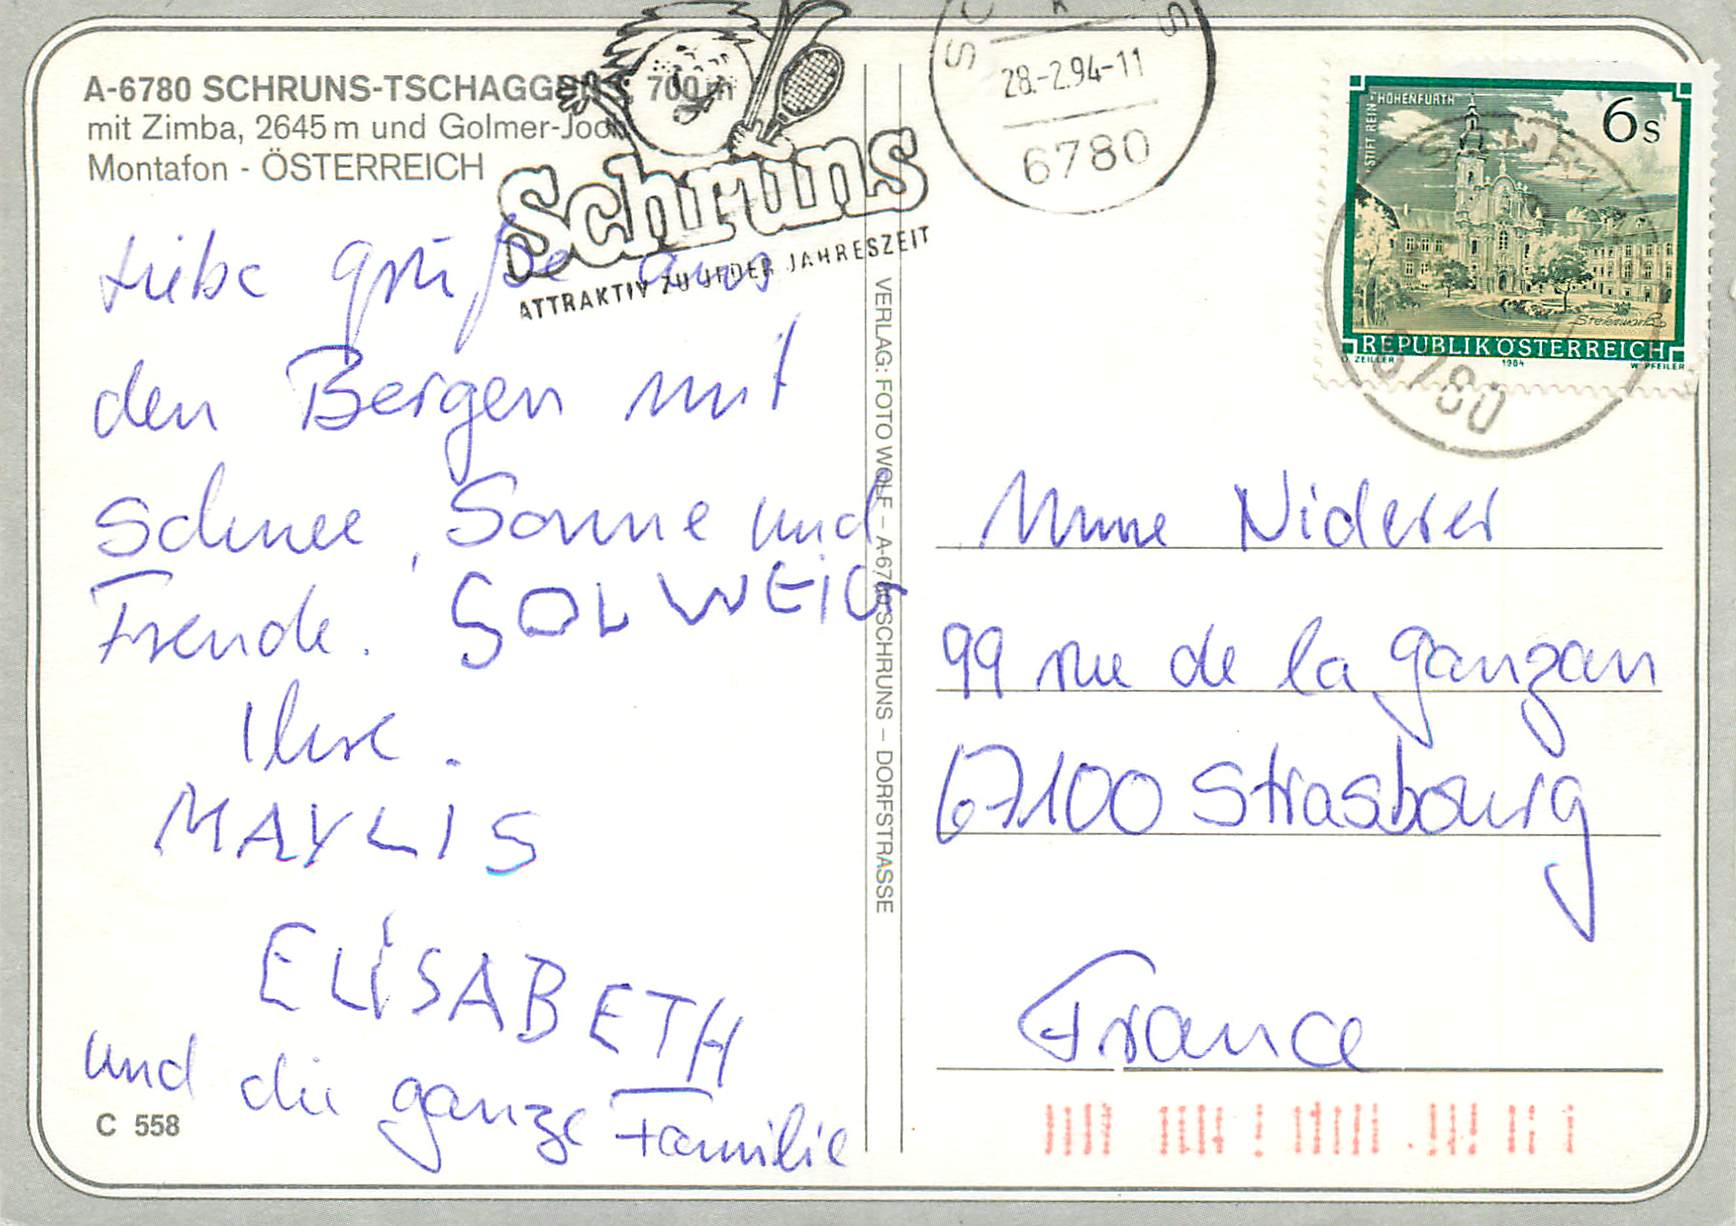 A-6780 SCHRUNS-TSCHAGGUNS, 700 m
mit Zimba, 2645 m und Golmer-Joch
Montafon - ÖSTERREICH
Schruns
ATTRAKTIV ZU JEDER JAHRESZEIT
28.-2.94-11
6780
STIFT REIN-HOHENFURTH
6 S
REPUBLIK ÖSTERREICH
O. ZEILLER 1984 W. PFEILER
6780
Liebe Grüße aus
den Bergen mit
Schnee, Sonne und
Freude. SOLWEIG
Ihre.
MAYLIS
ELISABETH
und die ganze Familie
C 558
VERLAG: FOTO WOLF – A-6780 SCHRUNS – DORFSTRASSE
Mme Niderer
99 rue de la Ganzau
67100 Strasbourg
France